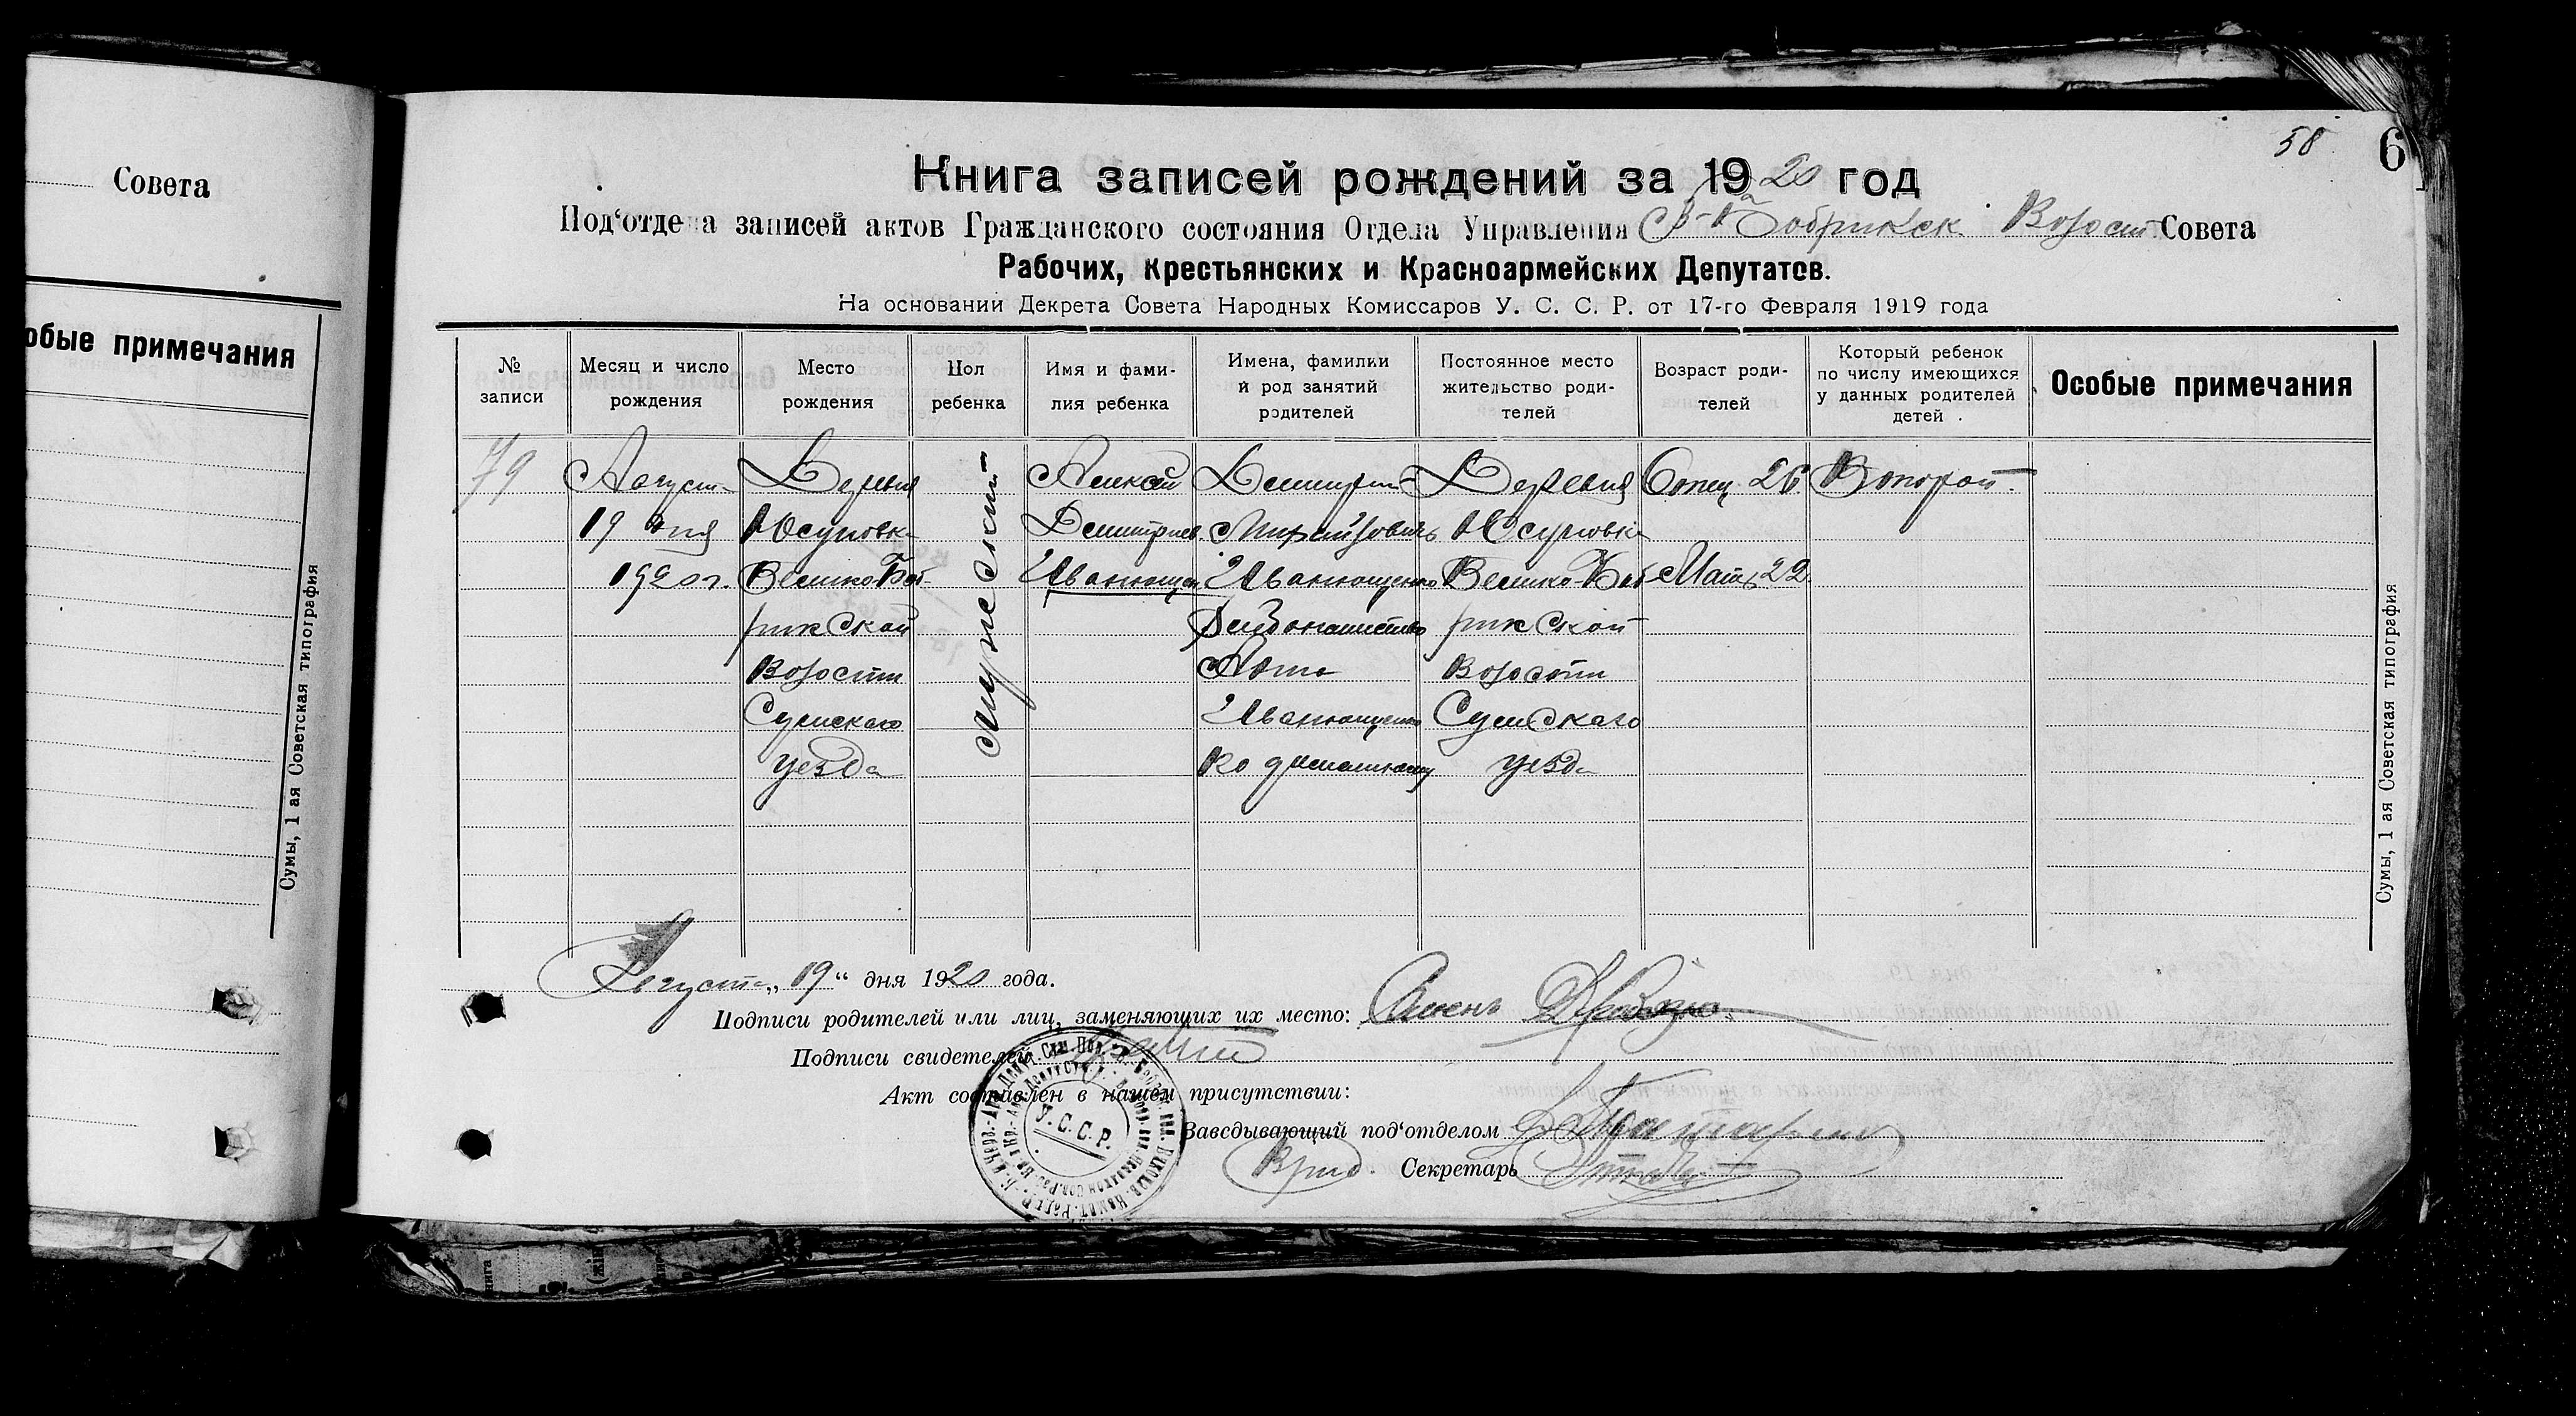 Совета
обые примечания
Сумы, 1 ая Советская типография
58
6
Книга записей рождений за 1920 год
Под‘отдела записей актов Гражданского состояния Отдела Управления В-Бобрикск. Волост. Совета
Рабочих, Крестьянских и Красноармейских Депутатов.
На основании Декрета Совета Народных Комиссаров У. С. С. Р. от 17-го Февраля 1919 года
№ записи
Месяц и число рождения
Место рождения
Пол ребенка
Имя и фами-
лия ребенка
Имена, фамилии
и род занятий
родителей
Постоянное место
жительство роди-
телей
Возраст роди-
телей
Который ребенок
по числу имеющихся
у данных родителей
детей
Особые примечания
79
Август
19 дня
1920 г.
Деревня
Юсуповка
Велико-Боб-
рикской
Волости
Сумскаго
уезда
Мужской
Алексей
Дмитриев.
Иванющен.
Дмитрий
Иванющенко
Хлебопашество
Иванющенко
Деревня
Юсуповка
Велико-Боб
рикской
Волости
Сумскаго
уезда
Отец 26
Мать 22
Второй
Сумы, 1 ая Советская типография
Августа „19“ дня 1920 года.
Подписи родителей или лиц, заменяющих их место:
Подписи свидетелей
Акт составлен в нашем присутствии:
У.С.С.Р.
Заведывающий под‘отделом
Врид. Секретарь